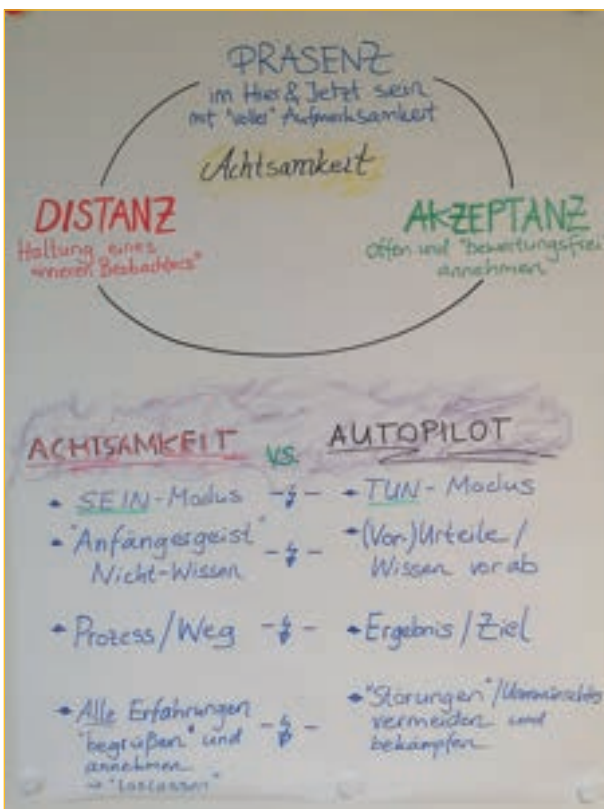 PRÄSENZ
im Hier & Jetzt sein
mit "voller" Aufmerksamkeit
Achtsamkeit
DISTANZ
Haltung eines
"inneren Beobachters"
AKZEPTANZ
Offen und "bewertungsfrei"
annehmen
ACHTSAMKEIT vs. AUTOPILOT
SEIN-Modus
TUN-Modus
"Anfängergeist"
Nicht-Wissen
(Vor-)Urteile /
Wissen vorab
Prozess/Weg
Ergebnis/Ziel
Alle Erfahrungen
"begrüßen" und
annehmen
→ "loslassen"
"Störungen"/Unerwünschtes
vermeiden und
bekämpfen